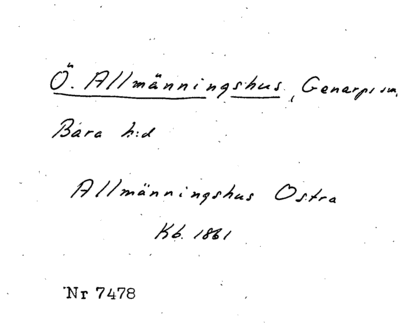 Ö. Allmänningshus, Genarps sn,
Bara h:d
Allmänningshus Ostra
Kb. 1861
Nr 7478